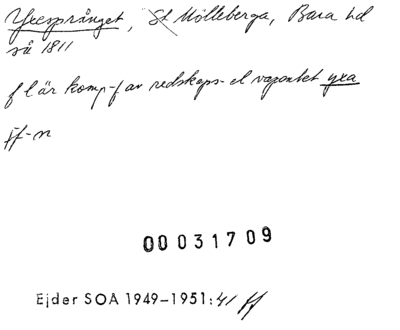 Yxesprånget, St Mölleberga, Bara hd
så 1811
f l är komp-f av redskaps- el vapentet yxa
ff-n
00031709
Ejder SOA 1949-1951:41 ff